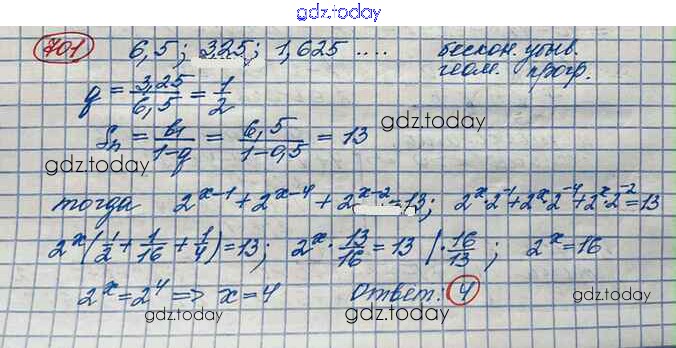 gdz.today
701 6,5; 3,25; 1,625 .... бескон. убыв.
геом. прогр.
q = 3,25/6,5 = 1/2
gdz.today
Sn = b1/(1-q) = 6,5/(1-0,5) = 13
gdz.today
тогда 2^(x-1) + 2^(x-4) + 2^(x-2) = 13; 2^x·2^(-1) + 2^x·2^(-4) + 2^x·2^(-2) = 13
2^x(1/2 + 1/16 + 1/4) = 13; 2^x · 13/16 = 13 |· 16/13; 2^x = 16
2^x = 2^4 => x = 4 Ответ: 4
gdz.today
gdz.today
gdz.today